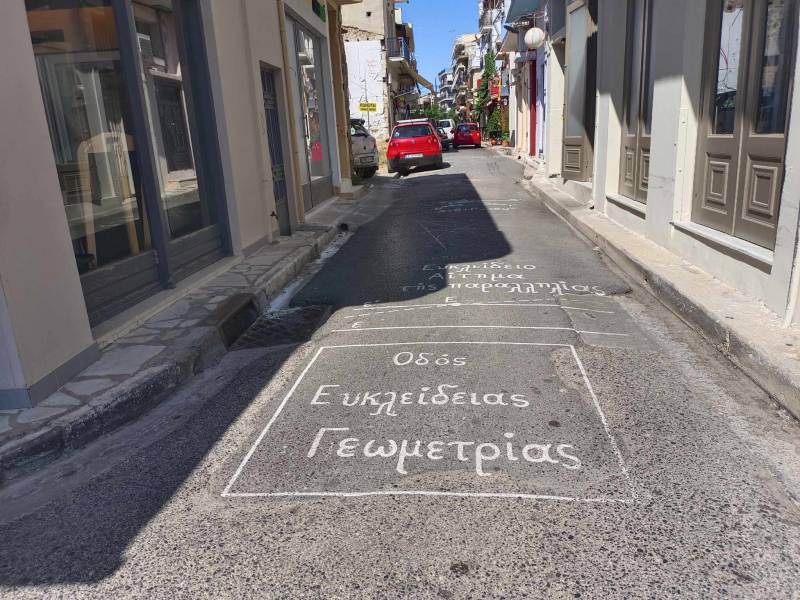 Ευκλείδειο
Αίτημα
της παραλληλίας
ε
Οδός
Ευκλείδειας
Γεωμετρίας